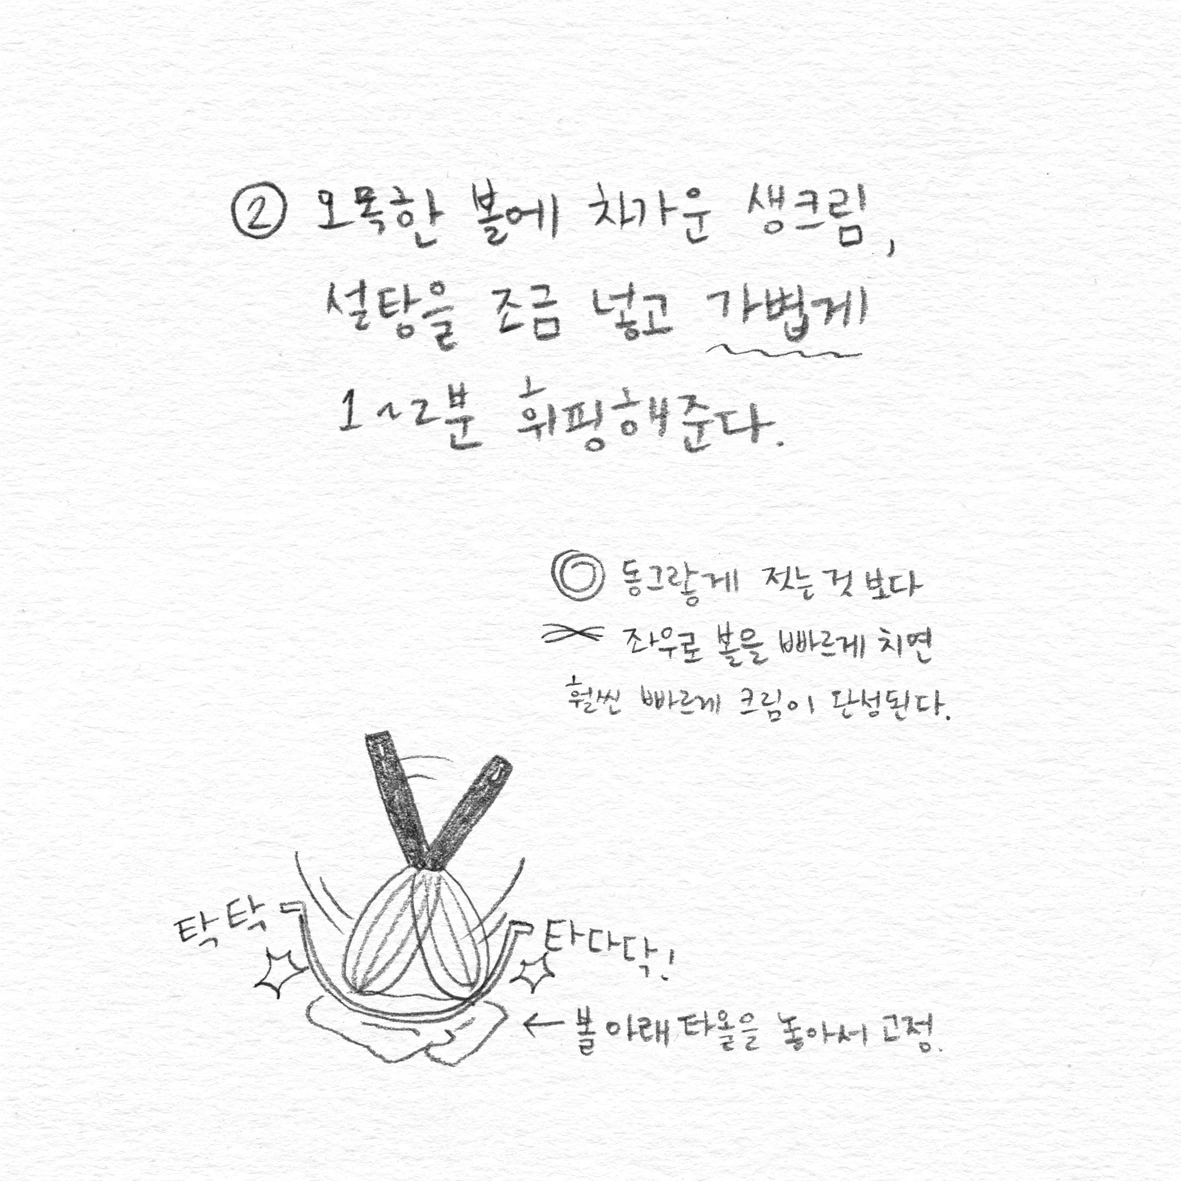 ② 오목한 볼에 차가운 생크림,
설탕을 조금 넣고 가볍게
1~2분 휘핑해준다.
동그랗게 젓는것 보다
좌우로 볼을 빠르게 치면
훨씬 빠르게 크림이 완성된다.
탁탁
타다닥!
← 볼 아래 타올을 놓아서 고정.